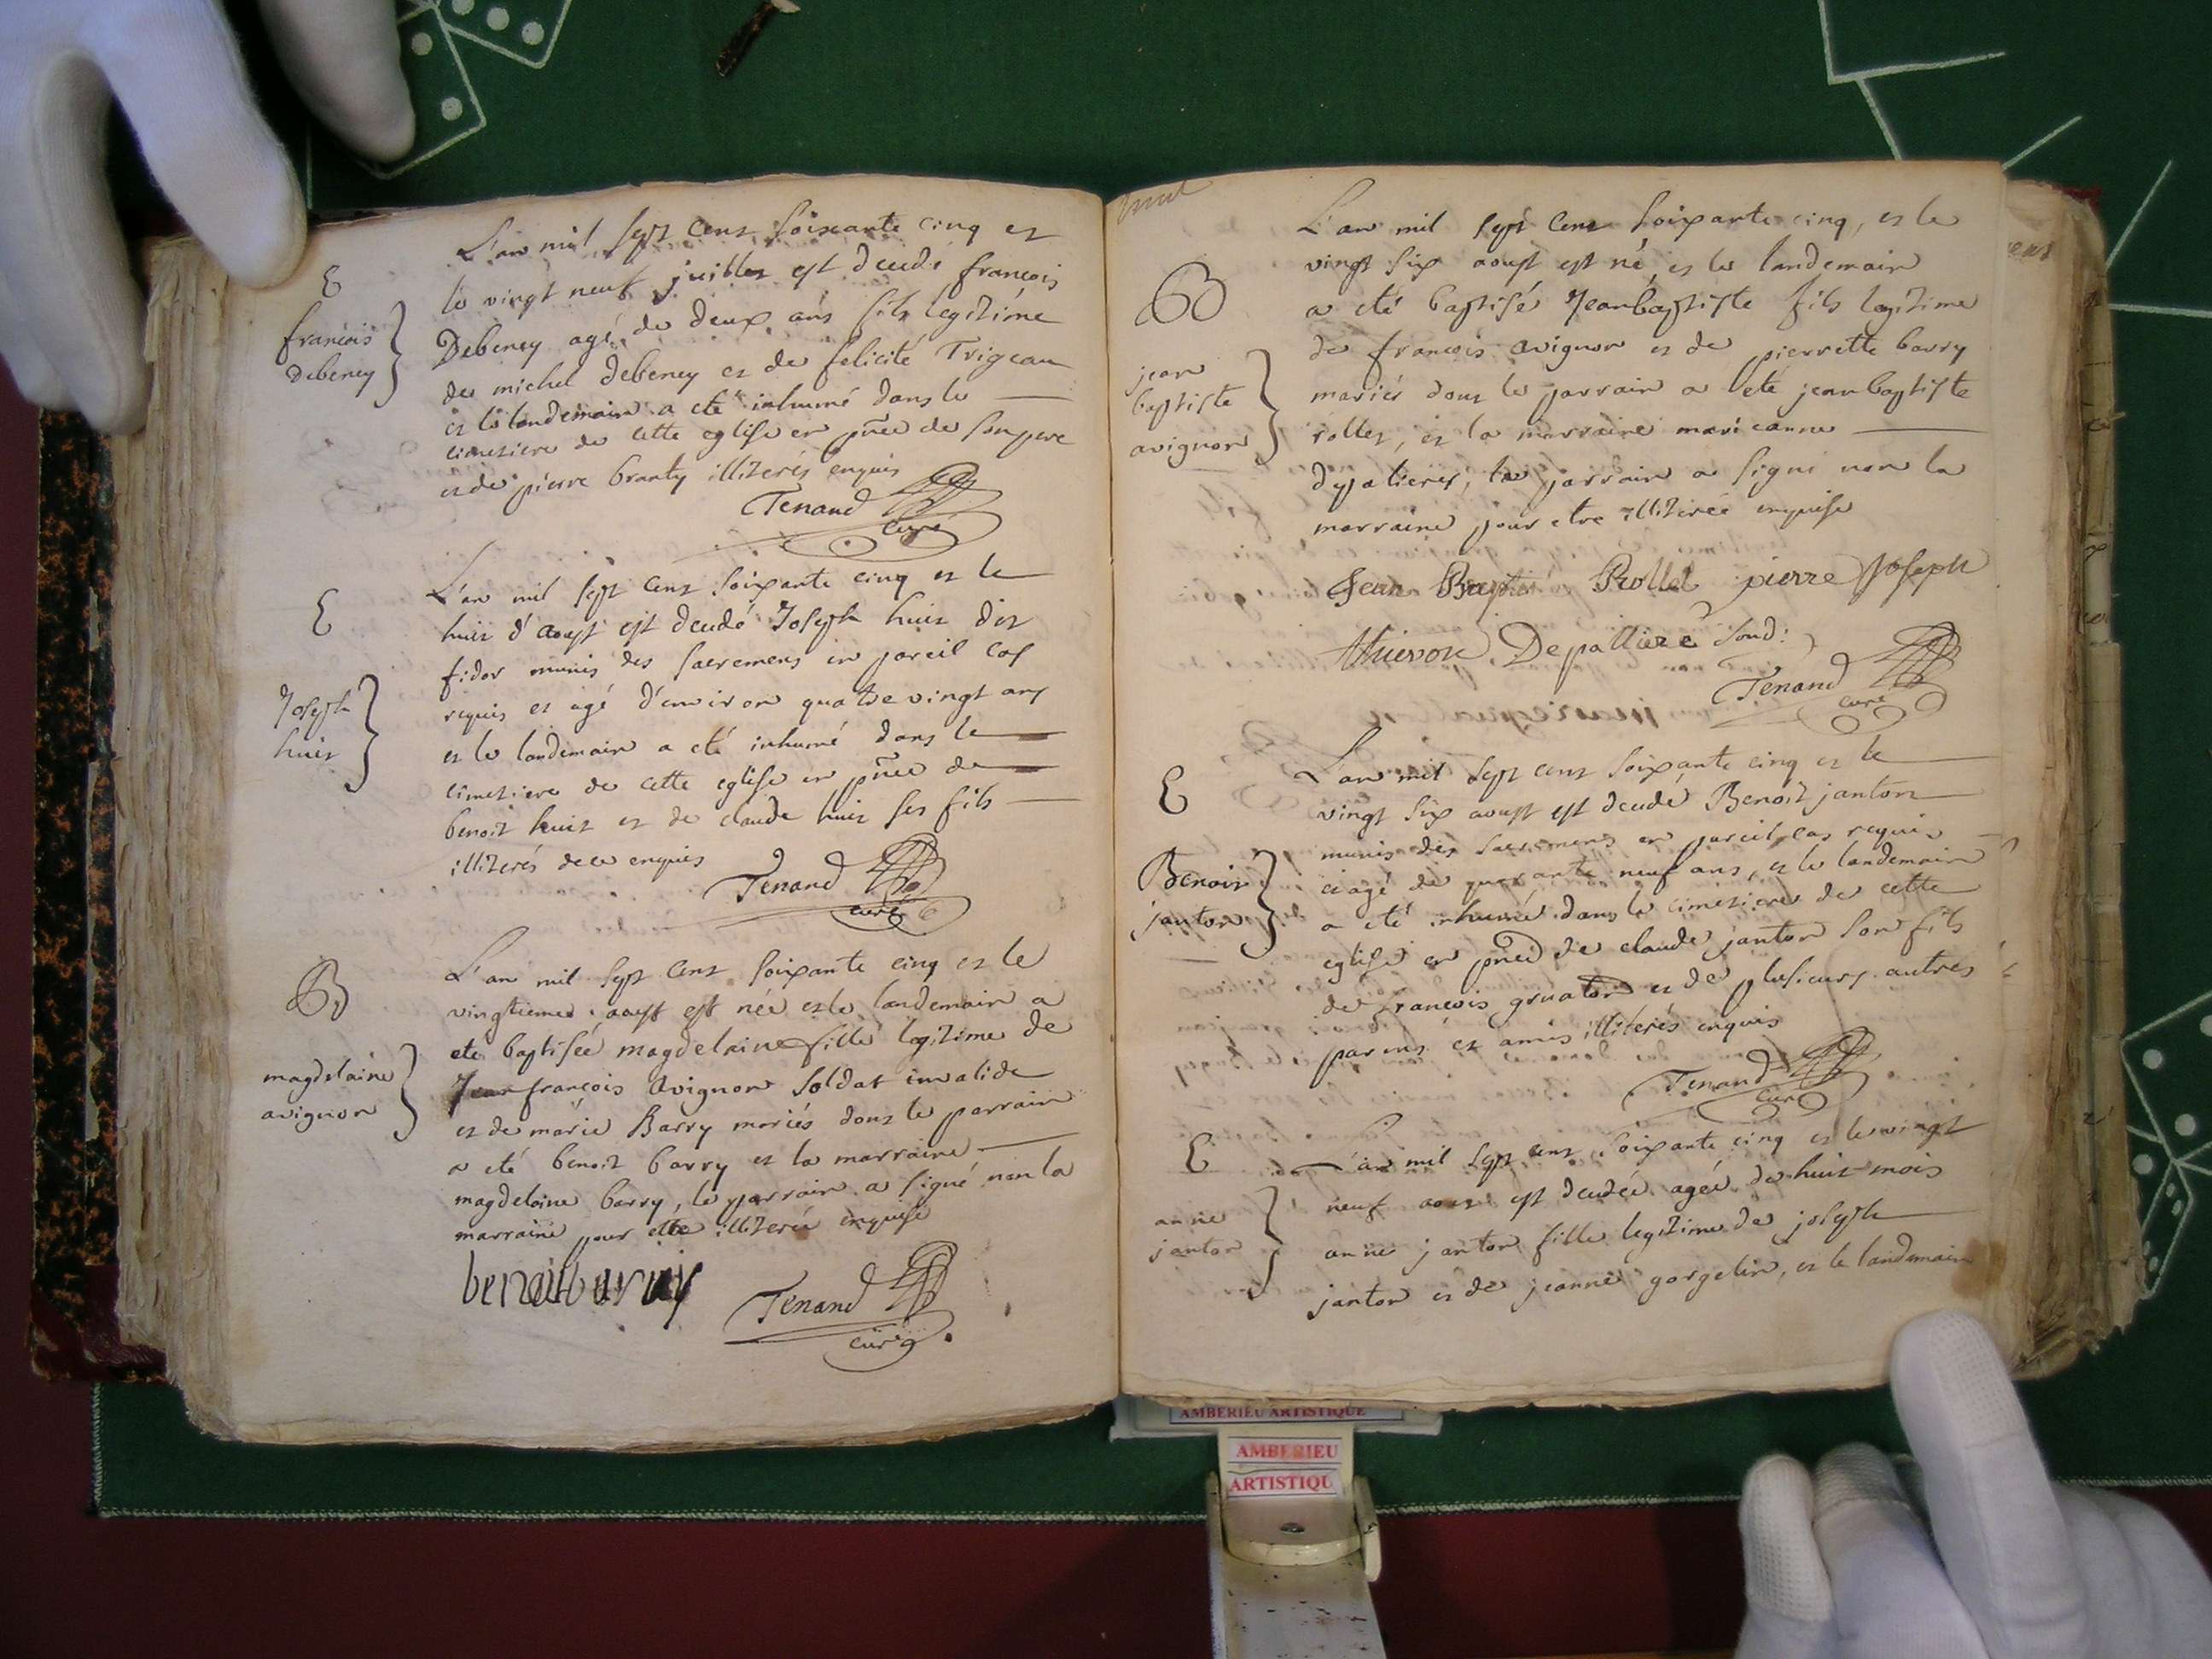 E
françois
Debeney
L'an mil sept cent soixante cinq et
le vingt neuf juillet est décudé françois
Debeney agé de deux ans fils legitime
de michel Debeney et de felicité Trigeau
et le landemain a eté inhumé dans le
cimetiere de cette eglise en pñce de son pere
et de pierre branty illiterés enquis
Tenand
curé
E
Joseph
huit
L'an mil sept cent soixante cinq et le
huit d'aoust est décudé Joseph huit dit
fidor munis des sacremens en pareil cas
requis et agé d'environ quatre vingt ans
et le landemain a eté inhumé dans le
cimetiere de cette eglise en pñce de
benoit huit et de claude huit ses fils
illiterés de ce enquis
Tenand
curé
B
magdelaine
avignon
L'an mil sept cent soixante cinq et le
vingtieme aoust est née et le landemain a
eté baptisée magdelaine fille legitime de
Jean françois Avignon soldat invalide
et de marie Barry mariés dont le parrain
a eté benoit barry et la marraine
magdelaine barry, le parrain a signé non la
marraine pour etre illiterée enquise
benoit barry
Tenand
curé
B
jean
baptiste
avignon
L'an mil sept cent soixante cinq, et le
vingt six aoust est né, et le landemain
a eté baptisé Jean baptiste fils legitime
de françois avignon et de pierrette barry
mariés dont le parrain a eté jean baptiste
rollet, et la marraine marieanne
dépalieres, le parrain a signé non la
marraine pour etre illiterée enquise
Jean Baptiste Rollet pierre Joseph
thievon Depalliere
Tenand
curé
E
Benoit
janton
L'an mil sept cent soixante cinq et le
vingt six aoust est décudé Benoit janton
munis des sacremens en pareil cas requis
et agé de quarante neuf ans, et le landemain
a eté inhumé dans le cimetiere de cette
eglise en pñce de claude janton son fils
de françois gruaton et de plusieurs autres
parens et amis illiterés enquis
Tenand
curé
E
anne
janton
L'an mil sept cent soixante cinq et le vingt
neuf aout est décudée agée de huit mois
anne janton fille legitime de joseph
janton et de jeanne gorgelin, et le landemain
AMBERIEU ARTISTIQUE
AMBERIEU
ARTISTIQU